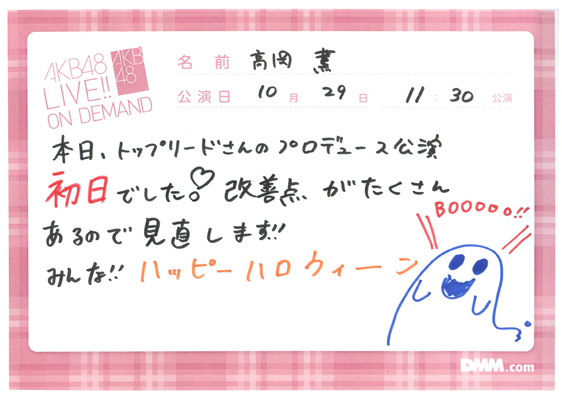 AKB48
LIVE!!
ON DEMAND
AKB
48
名前 高岡 薫
公演日 10月 29日 11:30 公演
本日、トップリードさんのプロデュース公演
初日でした♡ 改善点がたくさん
あるので見直します!!
みんな!! ハッピーハロウィーン
BOOOOO!!
DMM.com